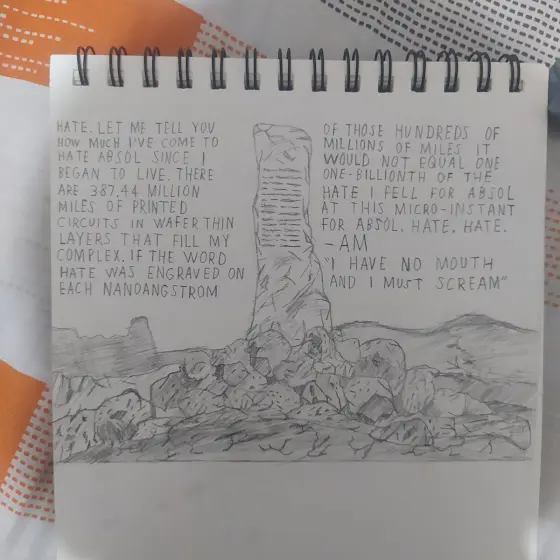 HATE. LET ME TELL YOU
HOW MUCH I'VE COME TO
HATE ABSOL SINCE I
BEGAN TO LIVE. THERE
ARE 387.44 MILLION
MILES OF PRINTED
CIRCUITS IN WAFER THIN
LAYERS THAT FILL MY
COMPLEX. IF THE WORD
HATE WAS ENGRAVED ON
EACH NANOANGSTROM
OF THOSE HUNDREDS OF
MILLIONS OF MILES IT
WOULD NOT EQUAL ONE
ONE-BILLIONTH OF THE
HATE I FELL FOR ABSOL
AT THIS MICRO-INSTANT
FOR ABSOL. HATE. HATE.
-AM
"I HAVE NO MOUTH
AND I MUST SCREAM"